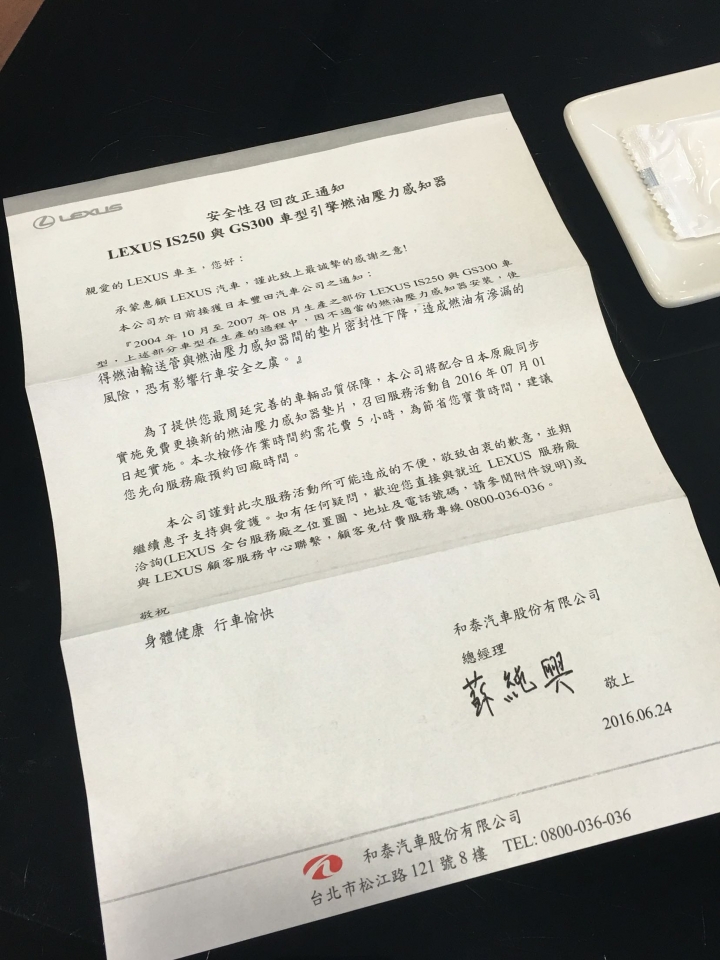 LEXUS
安全性召回改正通知
LEXUS IS250 與 GS300 車型引擎燃油壓力感知器
親愛的 LEXUS 車主，您好：
承蒙惠顧 LEXUS 汽車，謹此致上最誠摯的感謝之意!
本公司於日前接獲日本豐田汽車公司之通知：
『2004 年 10 月至 2007 年 08 月生產之部份 LEXUS IS250 與 GS300 車
型，上述部分車型在生產的過程中，因不適當的燃油壓力感知器安裝，使
得燃油輸送管與燃油壓力感知器間的墊片密封性下降，造成燃油有滲漏的
風險，恐有影響行車安全之虞。』
為了提供您最周延完善的車輛品質保障，本公司將配合日本原廠同步
實施免費更換新的燃油壓力感知器墊片，召回服務活動自 2016 年 07 月 01
日起實施。本次檢修作業時間約需花費 5 小時，為節省您寶貴時間，建議
您先向服務廠預約回廠時間。
本公司謹對此次服務活動所可能造成的不便，敬致由衷的歉意，並期
繼續惠予支持與愛護。如有任何疑問，歡迎您直接與就近 LEXUS 服務廠
洽詢(LEXUS 全台服務廠之位置圖、地址及電話號碼，請參閱附件說明)或
與 LEXUS 顧客服務中心聯繫，顧客免付費服務專線 0800-036-036。
敬祝
身體健康 行車愉快
和泰汽車股份有限公司
總經理
蘇純興 敬上
2016.06.24
和泰汽車股份有限公司
台北市松江路 121 號 8 樓 TEL: 0800-036-036